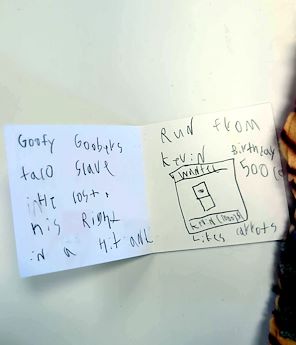 Goofy Goobers
taco slave
lost.
his Right
in a Hit and
Run from
Kevin
Birthday
wanted
500
Kevin
Likes carrots